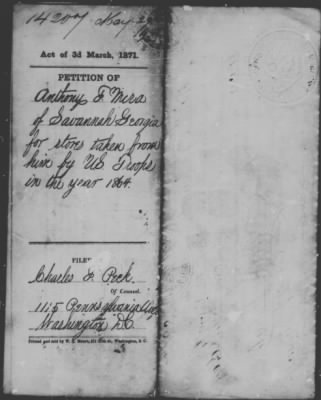 14207 May
Act of 3d March, 1871.
PETITION OF
Anthony F. Mira
of Savannah Georgia
for stores taken from
him by U.S. Troops
in the year 1864.
FILED
Charles F. Peck.
Of Counsel.
1115 Pennsylvania Ave
Washington D.C.